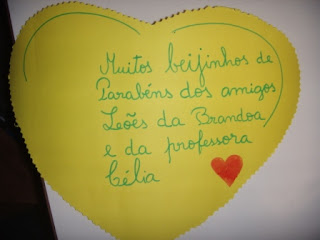 Muitos beijinhos de
Parabéns dos amigos
Leões da Brandoa
e da professora
Célia